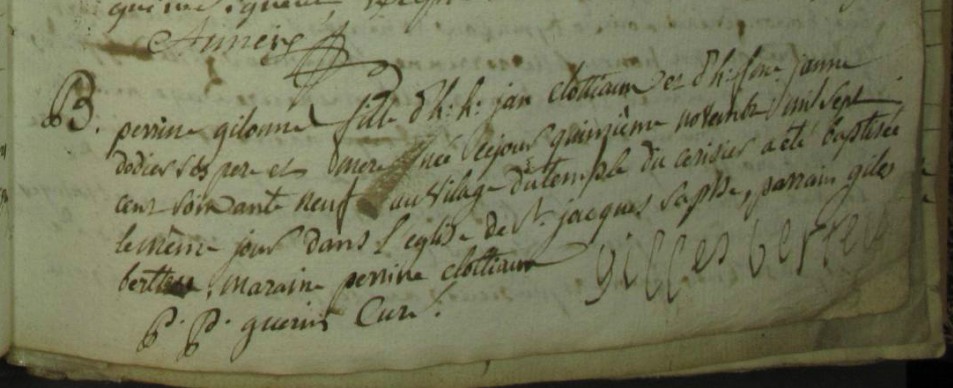 Annere
B. perrine gilonne fille d'h. h. jan clottiaux et d'h. fene janne
dodier ses pere et mere née cejour quinzième novembre mil sept
cent soixante neuf au vilage du temple du cerisier a été baptisée
le même jour dans l'eglise de St. jacques, parrain giles
berttau, maraine perrine clottiaux gilles berteu
P. P. guerin Curé.